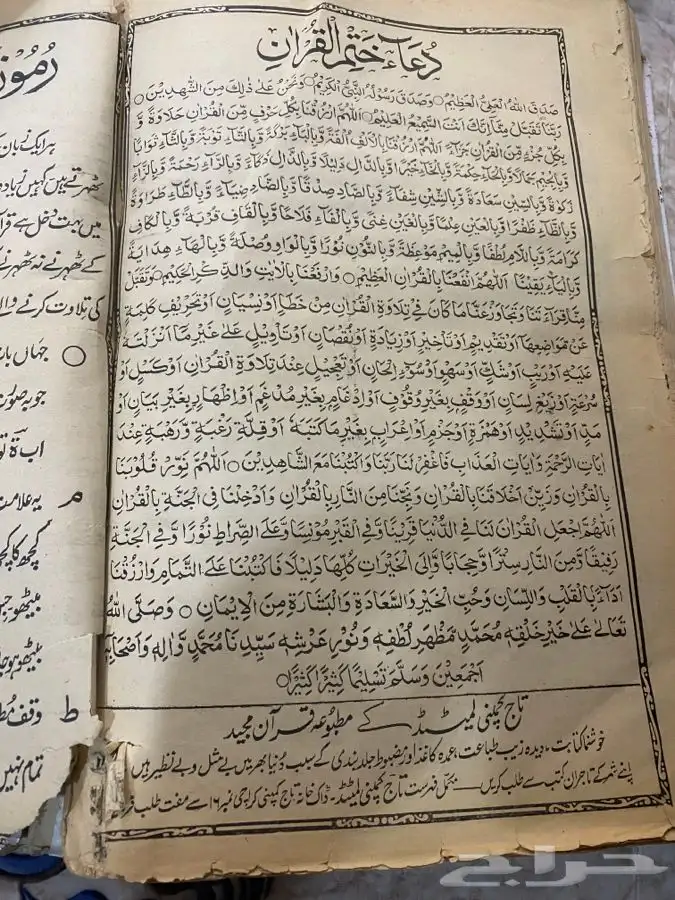 دُعَاءُ خَتْمِ الْقُرْاٰنِ
صَدَقَ اللهُ الْعَلِيُّ الْعَظِيْمُ ○ وَصَدَقَ رَسُوْلُهُ النَّبِيُّ الْكَرِيْمُ ○ وَنَحْنُ عَلٰى ذٰلِكَ مِنَ الشّٰهِدِيْنَ ○
رَبَّنَا تَقَبَّلْ مِنَّا اِنَّكَ اَنْتَ السَّمِيْعُ الْعَلِيْمُ ○ اَللّٰهُمَّ ارْزُقْنَا بِكُلِّ حَرْفٍ مِّنَ الْقُرْاٰنِ حَلَاوَةً وَّ
بِكُلِّ جُزْءٍ مِّنَ الْقُرْاٰنِ جَزَآءً اَللّٰهُمَّ ارْزُقْنَا بِالْاَلِفِ اُلْفَةً وَّبِالْبَآءِ بَرَكَةً وَّبِالتَّآءِ تَوْبَةً وَّبِالثَّآءِ ثَوَابًا
وَّبِالْجِيْمِ جَمَالًا وَّبِالْحَآءِ حِكْمَةً وَّبِالْخَآءِ خَيْرًا وَّبِالدَّالِ دَلِيْلًا وَّبِالذَّالِ ذَكَآءً وَّبِالرَّآءِ رَحْمَةً وَّبِالزَّآءِ
زَكٰوةً وَّبِالسِّيْنِ سَعَادَةً وَّبِالشِّيْنِ شِفَآءً وَّبِالصَّادِ صِدْقًا وَّبِالضَّادِ ضِيَآءً وَّبِالطَّآءِ طَرَاوَةً
وَّبِالظَّآءِ ظَفَرًا وَّبِالْعَيْنِ عِلْمًا وَّبِالْغَيْنِ غِنًى وَّبِالْفَآءِ فَلَاحًا وَّبِالْقَافِ قُرْبَةً وَّبِالْكَافِ
كَرَامَةً وَّبِاللَّامِ لُطْفًا وَّبِالْمِيْمِ مَوْعِظَةً وَّبِالنُّوْنِ نُوْرًا وَّبِالْوَاوِ وُصْلَةً وَّبِالْهَآءِ هِدَايَةً
وَّبِالْيَآءِ يَقِيْنًا اَللّٰهُمَّ انْفَعْنَا بِالْقُرْاٰنِ الْعَظِيْمِ ○ وَارْفَعْنَا بِالْاٰيٰتِ وَالذِّكْرِ الْحَكِيْمِ ○ وَتَقَبَّلْ
مِنَّا قِرَآءَتَنَا وَتَجَاوَزْ عَنَّا مَا كَانَ فِيْ تِلَاوَةِ الْقُرْاٰنِ مِنْ خَطَاٍ اَوْ نِسْيَانٍ اَوْ تَحْرِيْفِ كَلِمَةٍ
عَنْ مَّوَاضِعِهَا اَوْ تَقْدِيْمٍ اَوْ تَاْخِيْرٍ اَوْ زِيَادَةٍ اَوْ نُقْصَانٍ اَوْ تَاْوِيْلٍ عَلٰى غَيْرِ مَا اَنْزَلْتَهٗ
عَلَيْهِ اَوْ رَيْبٍ اَوْ شَكٍّ اَوْ سَهْوٍ اَوْ سُوْٓءِ اِلْحَانٍ اَوْ تَعْجِيْلٍ عِنْدَ تِلَاوَةِ الْقُرْاٰنِ اَوْ كَسَلٍ اَوْ
سُرْعَةٍ اَوْ زَيْغِ لِسَانٍ اَوْ وَقْفٍ بِغَيْرِ وُقُوْفٍ اَوْ اِدْغَامٍ بِغَيْرِ مُدْغَمٍ اَوْ اِظْهَارٍ بِغَيْرِ بَيَانٍ اَوْ
مَدٍّ اَوْ تَشْدِيْدٍ اَوْ هَمْزَةٍ اَوْ جَزْمٍ اَوْ اِعْرَابٍ بِغَيْرِ مَا كَتَبَهٗ اَوْ قِلَّةِ رَغْبَةٍ وَّرَهْبَةٍ عِنْدَ
اٰيَاتِ الرَّحْمَةِ وَاٰيَاتِ الْعَذَابِ فَاغْفِرْ لَنَا رَبَّنَا وَاكْتُبْنَا مَعَ الشَّاهِدِيْنَ ○ اَللّٰهُمَّ نَوِّرْ قُلُوْبَنَا
بِالْقُرْاٰنِ وَزَيِّنْ اَخْلَاقَنَا بِالْقُرْاٰنِ وَنَجِّنَا مِنَ النَّارِ بِالْقُرْاٰنِ وَاَدْخِلْنَا فِي الْجَنَّةِ بِالْقُرْاٰنِ
اَللّٰهُمَّ اجْعَلِ الْقُرْاٰنَ لَنَا فِي الدُّنْيَا قَرِيْنًا وَّفِي الْقَبْرِ مُوْنِسًا وَّعَلَى الصِّرَاطِ نُوْرًا وَّفِي الْجَنَّةِ
رَفِيْقًا وَّمِنَ النَّارِ سِتْرًا وَّحِجَابًا وَّاِلَى الْخَيْرَاتِ كُلِّهَا دَلِيْلًا فَاكْتُبْنَا عَلَى التَّمَامِ وَارْزُقْنَا
اَدَآءً بِالْقَلْبِ وَاللِّسَانِ وَحُبِّ الْخَيْرِ وَالسَّعَادَةِ وَالْبَشَارَةِ مِنَ الْاِيْمَانِ ○ وَصَلَّى اللهُ
تَعَالٰى عَلٰى خَيْرِ خَلْقِهٖ مُحَمَّدٍ مَّظْهَرِ لُطْفِهٖ وَنُوْرِ عَرْشِهٖ سَيِّدِنَا مُحَمَّدٍ وَّاٰلِهٖ وَاَصْحَابِهٖ
اَجْمَعِيْنَ وَسَلَّمَ تَسْلِيْمًا كَثِيْرًا كَثِيْرًا ○
تاج کمپنی لمیٹڈ کے مطبوعہ قرآن مجید
خوشنما کتابت، دیدہ زیب طباعت، عمدہ کاغذ اور مضبوط جلد بندی کے سبب دنیا بھر میں بے مثل و بے نظیر ہیں
اپنے شہر کے تاجران کتب سے طلب کریں — مکمل فہرست تاج کمپنی لمیٹڈ۔ ڈاک خانہ تاج کمپنی کراچی نمبر ۱۶ سے مفت طلب
رموز
ہر ایک زبان
ٹھہرتے ہیں کہیں زیادہ
میں بہت دخل ہے قرآ
کے ٹھہرنے نہ ٹھہرنے
کی تلاوت کرنے والے
○ جہاں بات
جو بہ صورت
اب ۃ تو
م یہ علامت
کچھ کا کچھ
بیٹھو جس
بیٹھو ہو جا
ط وقف مط
تمام نہیں
حراج